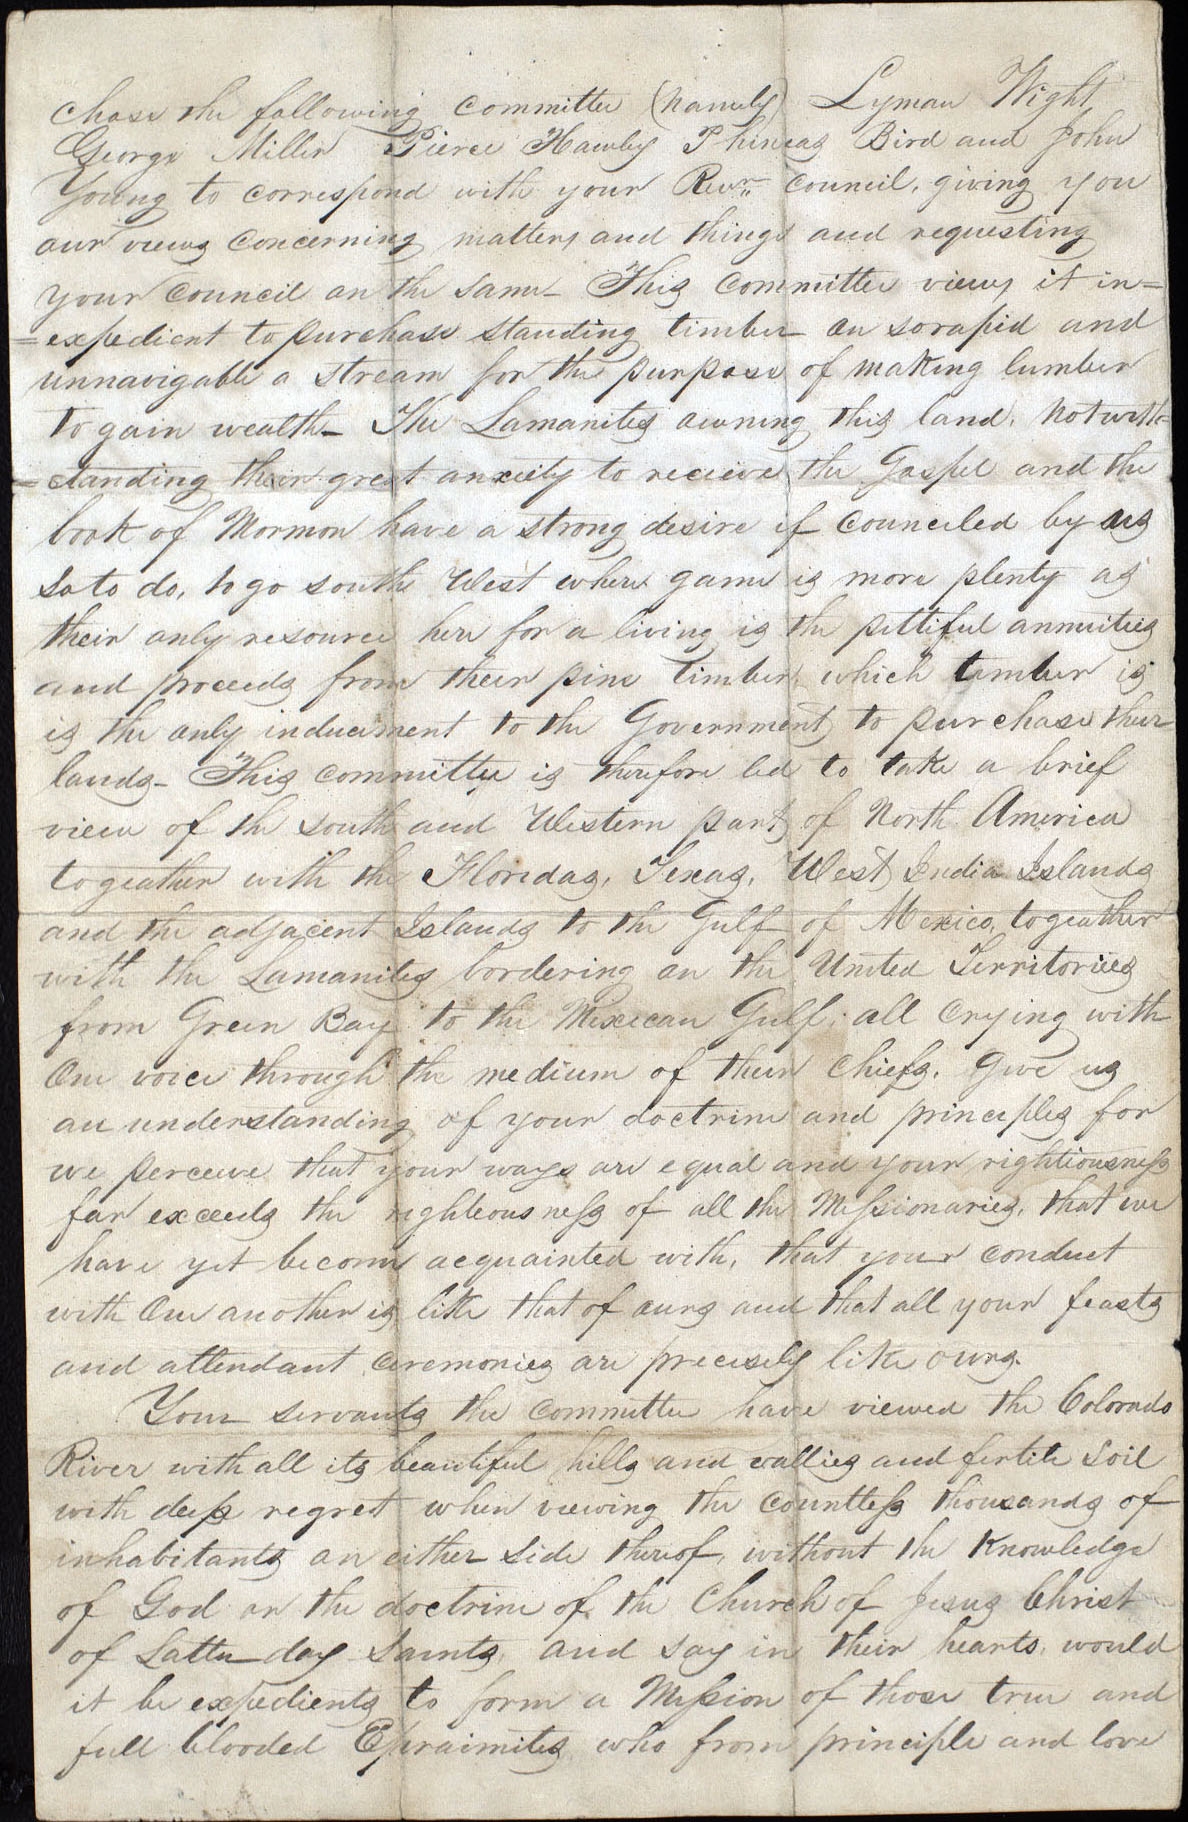 chose the following committee (namely) Lyman Wight
George Miller Pierce Hawley Phineas Bird and John
Young to correspond with your Revr. council, giving you
our views concerning matters and things and requesting
your council on the same– This committee views it in=
=expedient to purchase standing timber on so rapid and
unnavigable a stream for the purpose of making lumber
to gain wealth– The Lamanites owning this land, notwith=
=standing their great anxiety to recieve the Gospel and the
book of Mormon have a strong desire if counceled by us
so to do, to go south West where game is more plenty as
their only resource here for a living is the pittiful annuities
and proceeds from their pine timber, which timber is
is the only inducement to the Government to purchase their
lands– This committee is therefore led to take a brief
view of the south and Western part of North America
togeather with the Floridas, Texas, West India Islands
and the adjacent Islands to the Gulf of Mexico, togeather
with the Lamanites bordering on the United Territories
from Green Bay to the Mexican Gulf, all crying with
One voice through the medium of their chiefs. Give us
an understanding of your doctrine and principles for
we perceive that your ways are equal and your rightiousness
far exceeds the righteousness of all the Missionaries, that we
have yet become acquainted with, that your conduct
with One another is like that of ours and that all your feasts
and attendant ceremonies are precisely like ours.
Your servants the committee have viewed the Colorado
River with all its beautiful hills and vallies and fertile soil
with deep regret when viewing the countless thousands of
inhabitants on either side thereof, without the knowledge
of God or the doctrine of the Church of Jesus Christ
of Latter day Saints, and say in their hearts, would
it be expedients to form a Mission of those true and
full blooded Ephraimites, who from principle and love